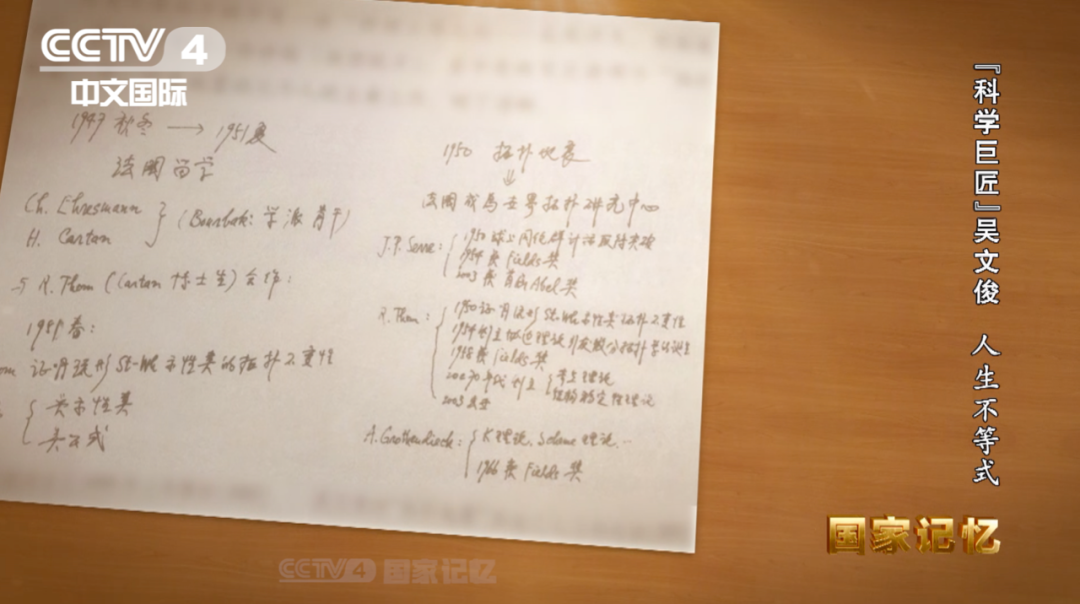 CCTV 4
中文国际
1947 秋冬 → 1951夏
法国留学
Ch. Ehresmann
H. Cartan
(Bourbaki 学派骨干)
与 R. Thom (Cartan 博士生) 合作:
春:
证明 流形 St-Wh 示性类的拓扑不变性
吴示性类
吴公式
1950 拓扑地震
⇓
法国成为世界拓扑研究中心
J.P. Serre:
1950 球上同伦群计算取得突破
1954 获 Fields 奖
2003 获首届 Abel 奖
R. Thom:
1950 证明流形 St-Wh 示性类拓扑不变性
1954 创立 理论 引 微分拓扑学的诞生
1958 获 Fields 奖
年代创立
奇点理论
结构稳定性理论
A. Grothendieck:
K理论、Scheme 理论...
1966 获 Fields 奖
『科学巨匠』吴文俊 人生不等式
国家记忆
CCTV 4 国家记忆